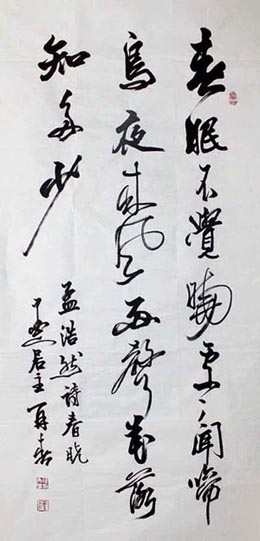 春眠不覺曉處々聞啼
鳥夜来風雨聲花落
知多少
孟浩然詩春曉
居主